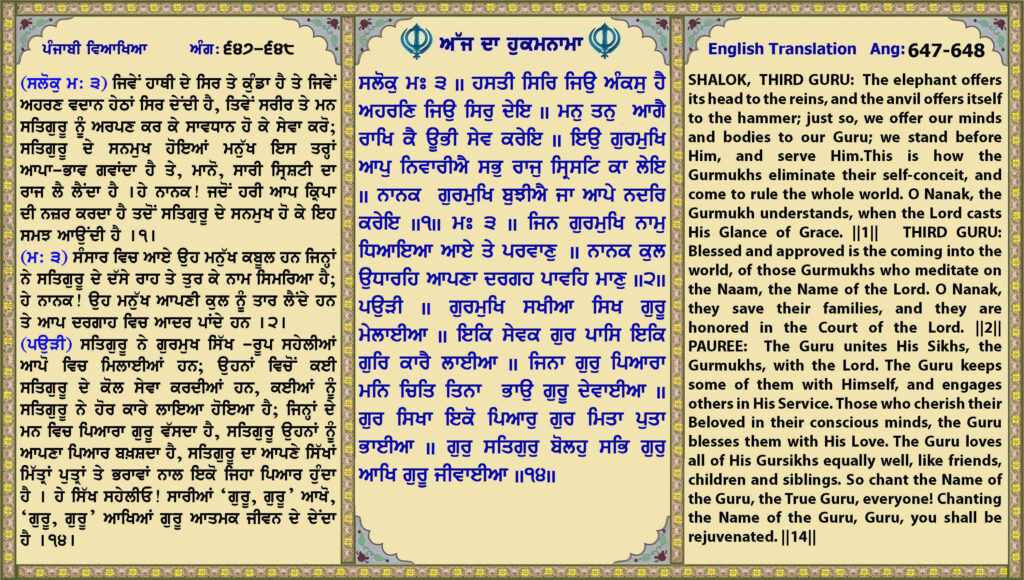 ਪੰਜਾਬੀ ਵਿਆਖਿਆ ਅੰਗ: ੬੪੭-੬੪੮
(ਸਲੋਕੁ ਮ: ੩) ਜਿਵੇਂ ਹਾਥੀ ਦੇ ਸਿਰ ਤੇ ਕੁੰਡਾ ਹੈ ਤੇ ਜਿਵੇਂ
ਅਹਰਣ ਵਦਾਨ ਹੇਠਾਂ ਸਿਰ ਦੇਂਦੀ ਹੈ, ਤਿਵੇਂ ਸਰੀਰ ਤੇ ਮਨ
ਸਤਿਗੁਰੂ ਨੂੰ ਅਰਪਣ ਕਰ ਕੇ ਸਾਵਧਾਨ ਹੋ ਕੇ ਸੇਵਾ ਕਰੋ;
ਸਤਿਗੁਰੂ ਦੇ ਸਨਮੁਖ ਹੋਇਆਂ ਮਨੁੱਖ ਇਸ ਤਰ੍ਹਾਂ
ਆਪਾ-ਭਾਵ ਗਵਾਂਦਾ ਹੈ ਤੇ, ਮਾਨੋ, ਸਾਰੀ ਸ੍ਰਿਸ਼ਟੀ ਦਾ
ਰਾਜ ਲੈ ਲੈਂਦਾ ਹੈ ।ਹੇ ਨਾਨਕ! ਜਦੋਂ ਹਰੀ ਆਪ ਕ੍ਰਿਪਾ
ਦੀ ਨਜ਼ਰ ਕਰਦਾ ਹੈ ਤਦੋਂ ਸਤਿਗੁਰੂ ਦੇ ਸਨਮੁਖ ਹੋ ਕੇ ਇਹ
ਸਮਝ ਆਉਂਦੀ ਹੈ ।੧।
(ਮ: ੩) ਸੰਸਾਰ ਵਿਚ ਆਏ ਉਹ ਮਨੁੱਖ ਕਬੂਲ ਹਨ ਜਿਨ੍ਹਾਂ
ਨੇ ਸਤਿਗੁਰੂ ਦੇ ਦੱਸੇ ਰਾਹ ਤੇ ਤੁਰ ਕੇ ਨਾਮ ਸਿਮਰਿਆ ਹੈ;
ਹੇ ਨਾਨਕ! ਉਹ ਮਨੁੱਖ ਆਪਣੀ ਕੁਲ ਨੂੰ ਤਾਰ ਲੈਂਦੇ ਹਨ
ਤੇ ਆਪ ਦਰਗਾਹ ਵਿਚ ਆਦਰ ਪਾਂਦੇ ਹਨ ।੨।
(ਪਉੜੀ) ਸਤਿਗੁਰੂ ਨੇ ਗੁਰਮੁਖ ਸਿੱਖ -ਰੂਪ ਸਹੇਲੀਆਂ
ਆਪੋ ਵਿਚ ਮਿਲਾਈਆਂ ਹਨ; ਉਹਨਾਂ ਵਿਚੋਂ ਕਈ
ਸਤਿਗੁਰੂ ਦੇ ਕੋਲ ਸੇਵਾ ਕਰਦੀਆਂ ਹਨ, ਕਈਆਂ ਨੂੰ
ਸਤਿਗੁਰੂ ਨੇ ਹੋਰ ਕਾਰੇ ਲਾਇਆ ਹੋਇਆ ਹੈ; ਜਿਨ੍ਹਾਂ ਦੇ
ਮਨ ਵਿਚ ਪਿਆਰਾ ਗੁਰੂ ਵੱਸਦਾ ਹੈ, ਸਤਿਗੁਰੂ ਉਹਨਾਂ ਨੂੰ
ਆਪਣਾ ਪਿਆਰ ਬਖ਼ਸ਼ਦਾ ਹੈ, ਸਤਿਗੁਰੂ ਦਾ ਆਪਣੇ ਸਿੱਖਾਂ
ਮਿੱਤ੍ਰਾਂ ਪੁਤ੍ਰਾਂ ਤੇ ਭਰਾਵਾਂ ਨਾਲ ਇਕੋ ਜਿਹਾ ਪਿਆਰ ਹੁੰਦਾ
ਹੈ । ਹੇ ਸਿੱਖ ਸਹੇਲੀਓ! ਸਾਰੀਆਂ ‘ਗੁਰੂ, ਗੁਰੂ’ ਆਖੋ,
‘ਗੁਰੂ, ਗੁਰੂ’ ਆਖਿਆਂ ਗੁਰੂ ਆਤਮਕ ਜੀਵਨ ਦੇ ਦੇਂਦਾ
ਹੈ ।੧੪।
ਅੱਜ ਦਾ ਹੁਕਮਨਾਮਾ
ਸਲੋਕੁ ਮਃ ੩ ॥ ਹਸਤੀ ਸਿਰਿ ਜਿਉ ਅੰਕਸੁ ਹੈ
ਅਹਰਣਿ ਜਿਉ ਸਿਰੁ ਦੇਇ ॥ ਮਨੁ ਤਨੁ ਆਗੈ
ਰਾਖਿ ਕੈ ਊਭੀ ਸੇਵ ਕਰੇਇ ॥ ਇਉ ਗੁਰਮੁਖਿ
ਆਪੁ ਨਿਵਾਰੀਐ ਸਭੁ ਰਾਜੁ ਸ੍ਰਿਸਟਿ ਕਾ ਲੇਇ
॥ ਨਾਨਕ ਗੁਰਮੁਖਿ ਬੁਝੀਐ ਜਾ ਆਪੇ ਨਦਰਿ
ਕਰੇਇ ॥੧॥ ਮਃ ੩ ॥ ਜਿਨ ਗੁਰਮੁਖਿ ਨਾਮੁ
ਧਿਆਇਆ ਆਏ ਤੇ ਪਰਵਾਣੁ ॥ ਨਾਨਕ ਕੁਲ
ਉਧਾਰਹਿ ਆਪਣਾ ਦਰਗਹ ਪਾਵਹਿ ਮਾਣੁ ॥੨॥
ਪਉੜੀ ॥ ਗੁਰਮੁਖਿ ਸਖੀਆ ਸਿਖ ਗੁਰੂ
ਮੇਲਾਈਆ ॥ ਇਕਿ ਸੇਵਕ ਗੁਰ ਪਾਸਿ ਇਕਿ
ਗੁਰਿ ਕਾਰੈ ਲਾਈਆ ॥ ਜਿਨਾ ਗੁਰੁ ਪਿਆਰਾ
ਮਨਿ ਚਿਤਿ ਤਿਨਾ ਭਾਉ ਗੁਰੂ ਦੇਵਾਈਆ ॥
ਗੁਰ ਸਿਖਾ ਇਕੋ ਪਿਆਰੁ ਗੁਰ ਮਿਤਾ ਪੁਤਾ
ਭਾਈਆ ॥ ਗੁਰੁ ਸਤਿਗੁਰੁ ਬੋਲਹੁ ਸਭਿ ਗੁਰੁ
ਆਖਿ ਗੁਰੂ ਜੀਵਾਈਆ ॥੧੪॥
English Translation Ang: 647-648
SHALOK, THIRD GURU: The elephant offers
its head to the reins, and the anvil offers itself
to the hammer; just so, we offer our minds
and bodies to our Guru; we stand before
Him, and serve Him.This is how the
Gurmukhs eliminate their self-conceit, and
come to rule the whole world. O Nanak, the
Gurmukh understands, when the Lord casts
His Glance of Grace. ||1|| THIRD GURU:
Blessed and approved is the coming into the
world, of those Gurmukhs who meditate on
the Naam, the Name of the Lord. O Nanak,
they save their families, and they are
honored in the Court of the Lord. ||2||
PAUREE: The Guru unites His Sikhs, the
Gurmukhs, with the Lord. The Guru keeps
some of them with Himself, and engages
others in His Service. Those who cherish their
Beloved in their conscious minds, the Guru
blesses them with His Love. The Guru loves
all of His Gursikhs equally well, like friends,
children and siblings. So chant the Name of
the Guru, the True Guru, everyone! Chanting
the Name of the Guru, Guru, you shall be
rejuvenated. ||14||